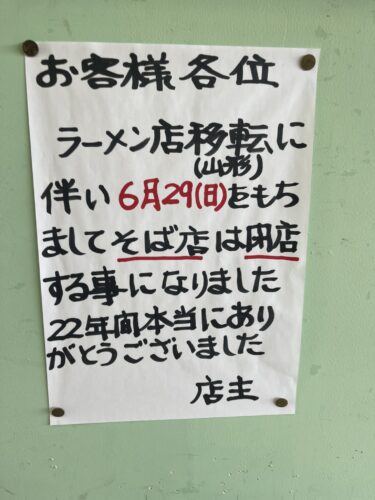 お客様各位
ラーメン店移転に
(山形)
伴い6月29(日)をもち
ましてそば店は閉店
する事になりました
22年間本当にあり
がとうございました
店主